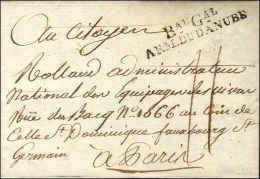 Bau Gal
ARM. DU DANUBE
Au Citoyen
Rolland administrateur
National des Equipages des vivres
Rue du Bacq No. 1666 au Coin de
Celle St. Dominique fauxbourg St.
Germain
à Paris